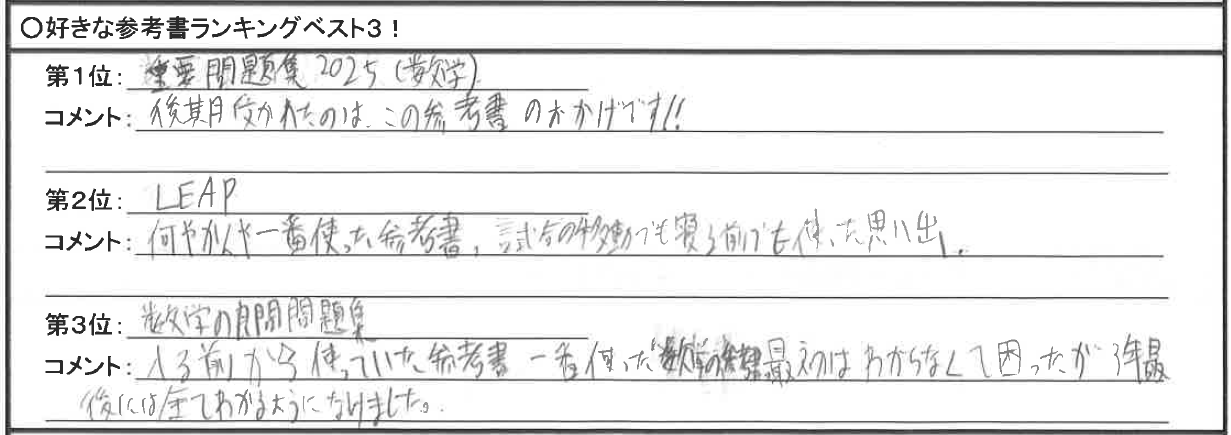 〇好きな参考書ランキングベスト3!
第1位: 重要問題集 2025 (数学)
コメント: 後期受かれたのは、この参考書のおかげです!!
第2位: LEAP
コメント: 何やかんや一番使った参考書、試合の移動でも寝る前でも使った思い出。
第3位: 数学の良問問題集
コメント: 入る前から使っていた参考書 一番使った数学の参考書 最初はわからなくて困ったが 3年最
後には全てわかるようになりました。